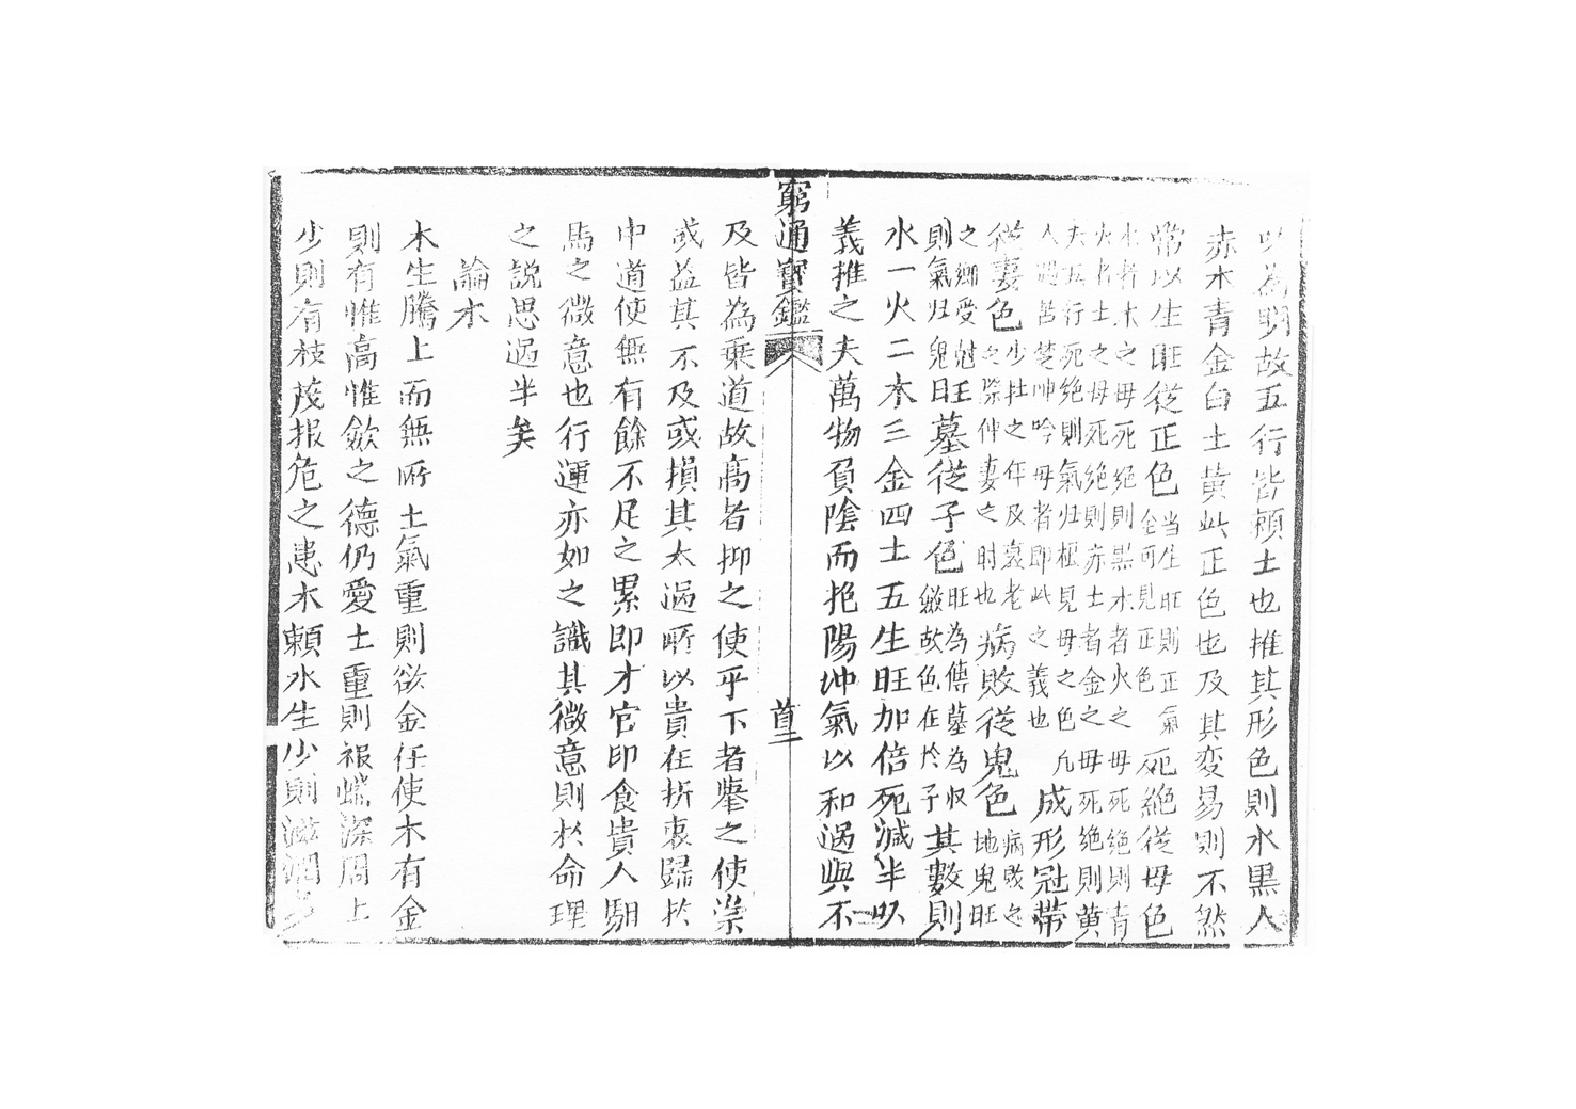 以為明故五行皆頼土也推其形色則水黒人
赤木青金白土黄此正色也及其变易則不然
常以生旺従正色
当生旺則正氣
全可見正色
死絶従母色
水者木之母死絕則黒木者火之母死絶則青
火者土之母死絶則赤土者金之母死絶則黄
夫五行死絶則氣归極見母之色凢
人過苦楚呻吟母者即此之義也
成形冠帯
従妻色
少壮之年及衰老
之際仲妻之时也
病敗従鬼色
病敗之
地鬼旺
之鄉受尅旺為傳墓為収
則氣归鬼
墓従子色
故色在於子
其數則
水一火二木三金四土五生旺加倍死減半以
義推之夫萬物負陰而抱陽冲氣以和過與不
窮通寳鑑
首二
及皆為乗道故高者抑之使乎下者擧之使崇
或益其不及或損其太過所以貴在折衷歸於
中道使無有餘不足之累即才官印食貴人馹
馬之微意也行運亦如之識其微意則於命理
之説思过半矣
論木
木生騰上而無所土氣重則欲金任使木有金
則有惟高惟歛之德仍愛土重則根蟠深固土
少則有枝茂报危之患木賴水生少則滋潤多